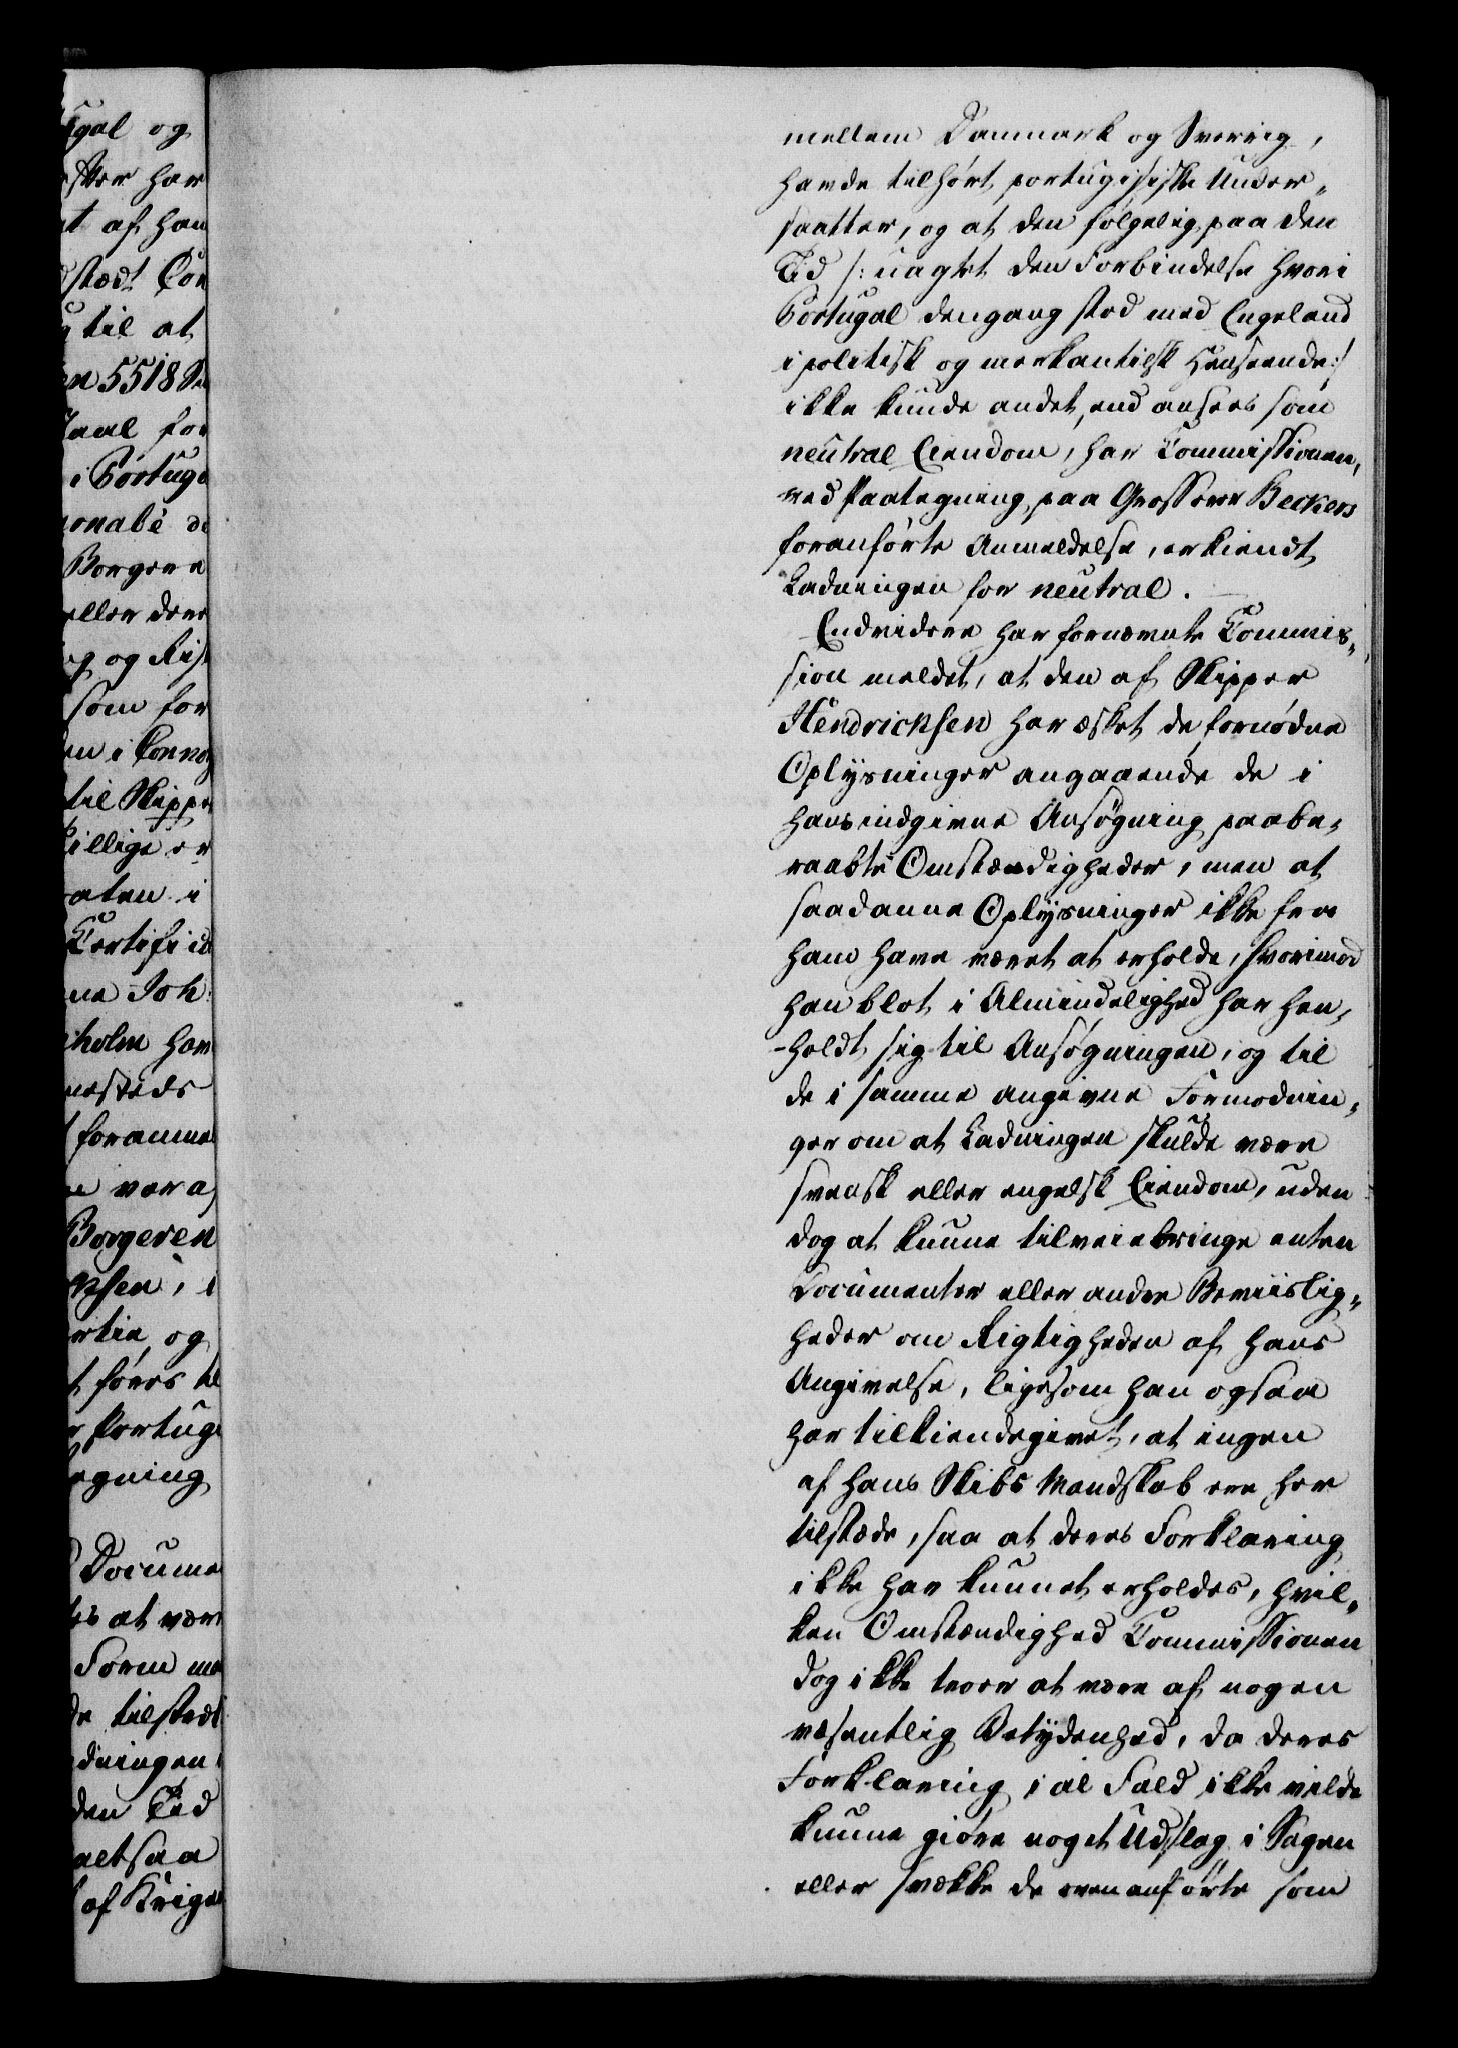 ugal og
ster har
t af han
dstædt Con
g til at
en 5518 Se
Taal for
i Portuga
onabe de
Borgere
eller dere
og og Ris
som for
en i Connos
til Skippe
villige er
aten i
Certifica
ne Joh:
holm hav
nesteds
foranme
e være
Borgeren
ksen, i
rtie og
t føres til
r Portug
egning
Docume
es at vær
Form me
de tilstræk
dningen
den Tid
altsaa
af Krige
mellem Danmark og Sverrig,
havde tilhørt portugisiske Under„
saatter, og at den følgelig paa den
Tid /: uagtet den Forbindelse hvori
Portugal dengang stod med Engeland
i politisk og merkantilsk Henseende :/
ikke kunde andet, end ansees som
neutral Eiendom, har Commissionen,
ved Paategning paa Grosserer Beckers
foranførte Anmeldelse, erkiendt
Ladningen for neutral.
Endvidere har fornævnte Commis„
sion meldet, at den af Skipper
Hendricksen har æsket de fornødne
Oplysninger angaaende de i
hans indgivne Ansøgning paabe„
raabte Omstændigheder, men at
saadanne Oplysninger ikke fra
ham have været at erholde, hvorimod
han blot i Almindelighed har hen„
-holdt sig til Ansøgningen, og til
de i samme angivne Formodnin„
ger om at Ladningen skulde være
svensk eller engelsk Eiendom, uden
dog at kunne tilveiebringe enten
Documenter eller andre Beviislig„
heder om Rigtigheden af hans
Angivelse, ligesom han ogsaa
har tilkiendegivet, at ingen
af hans Skibs Mandskab ere her
tilstæde, saa at deres Forklaring
ikke har kunnet erholdes, hvil„
ken Omstændighed Commissionen
dog ikke troer at være af nogen
væsentlig Betydenhed, da deres
Forklaring i al Fald ikke vilde
kunne giøre noget Udslag i Sagen
eller svække de ovenanførte som